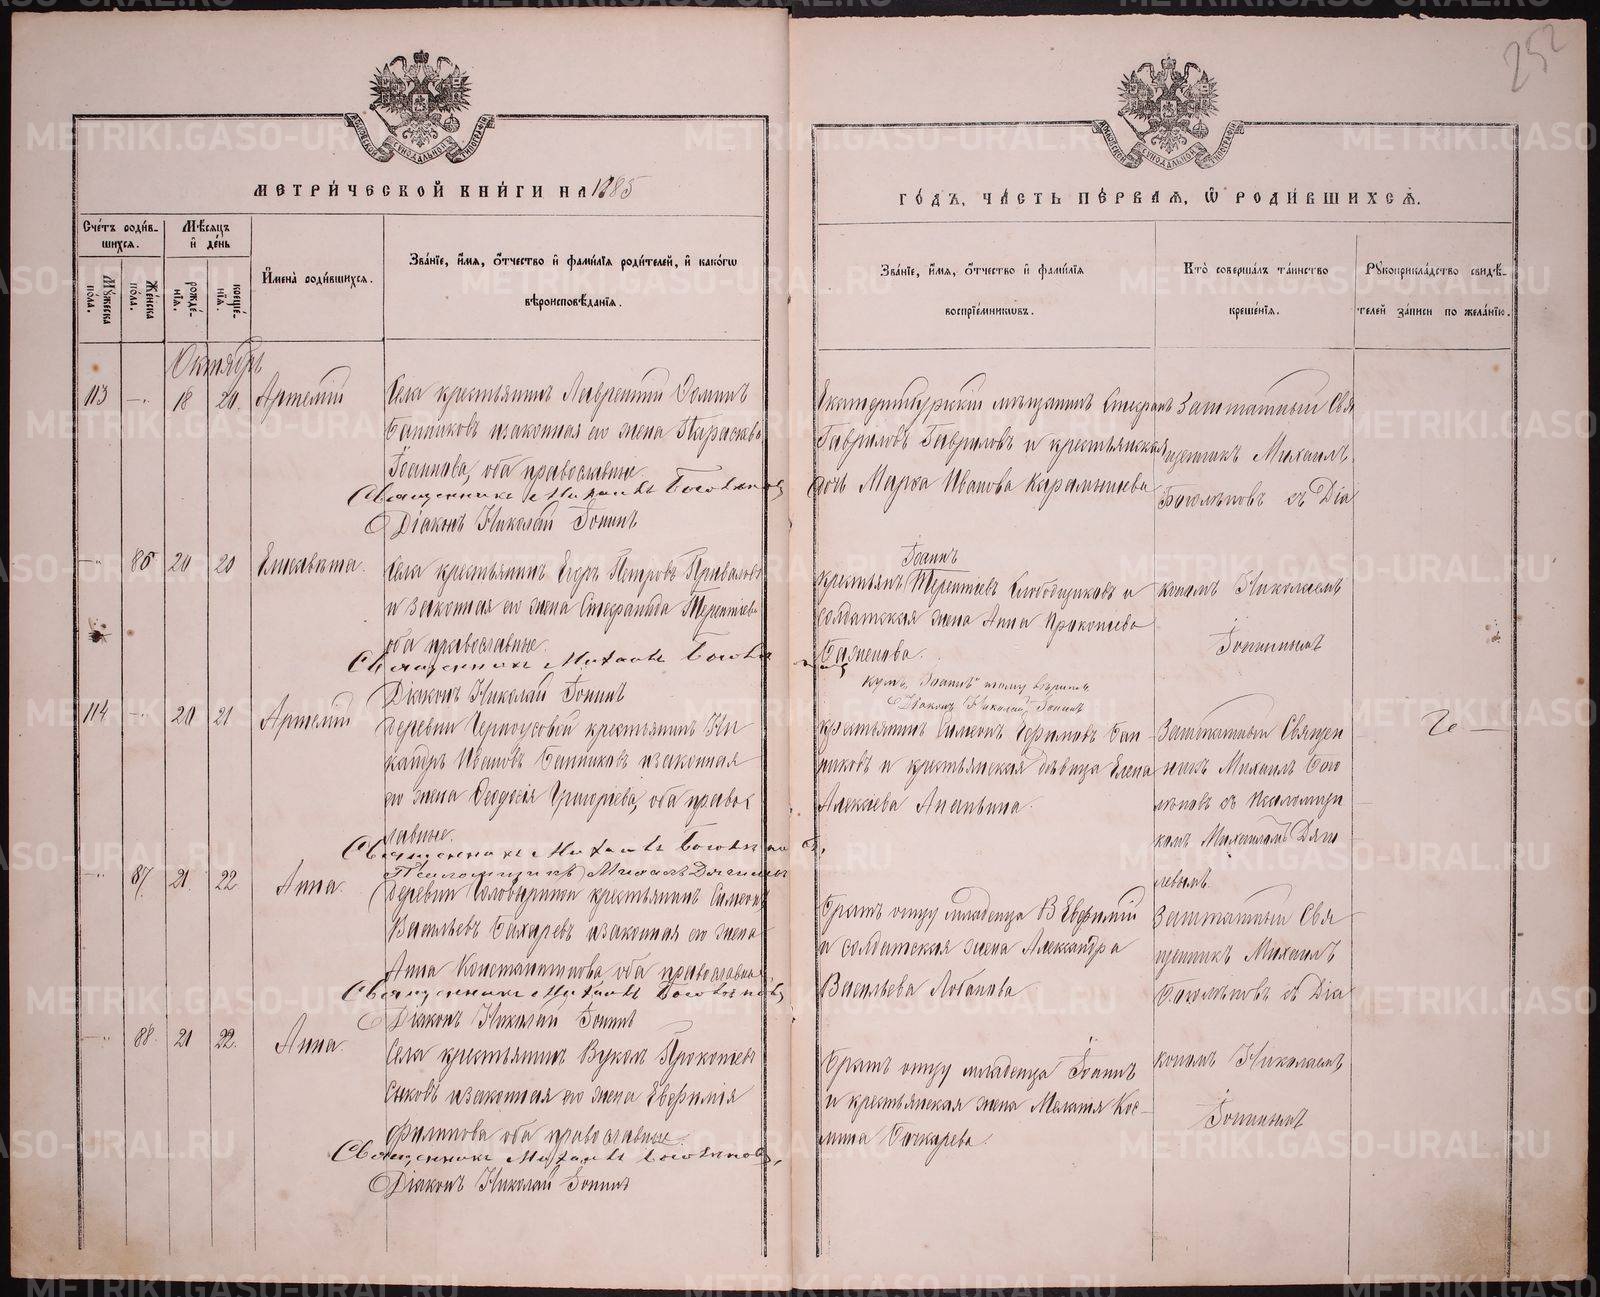 252
МЕТРИ́ЧЕСКОЙ КНИ́ГИ НА 1885
ГО́ДЪ, ЧА́СТЬ ПЕ́РВАѦ, Ѡ҆ РОДИ́ВШИХСѦ.
Сче́тъ роди́вшихсѧ.
Мꙋ́жеска по́ла.
Же́нска по́ла.
Мѣ́сѧцъ и҆ де́нь
рожде́нїѧ.
креще́нїѧ.
И҆мена̀ роди́вшихсѧ.
Зва́нїе, и҆́мѧ, ѻ҆́тчество и҆ фами́лїѧ роди́телей, и҆ како́гѡ
вѣроисповѣ́данїѧ.
Зва́нїе, и҆́мѧ, ѻ҆́тчество и҆ фами́лїѧ
воспрїе́мникѡвъ.
Кто̀ соверша́лъ та́инство
креще́нїѧ.
Рꙋкоприкла́дство свидѣ́-
телей за́писи по жела́нїю.
Октябрь
113 — 18 20. Артемій
Села крестьянинъ Лаврентій Ѳоминъ
Банниковъ и законная его жена Параскева
Іоаннова, оба православные
Священникъ Михаилъ Боголѣповъ
Діаконъ Николай Іонинъ
Екатеринбургскій мѣщанинъ Стефанъ
Гавриловъ Гавриловъ и крестьянская
дочь Марѳа Иванова
Заштатный Свя
щенникъ Михаилъ
Боголѣповъ съ Діа
— 86 20 20 Елисавета.
Села крестьянинъ Егоръ Петровъ Приваловъ
и законная его жена Стефанида Терентіева
оба православные.
Священникъ Михаилъ Боголѣповъ
Діаконъ Николай Іонинъ
Іоаннъ
крестьян Терентіевъ Слободчиковъ и
солдатская жена Анна Прокопіева
Баженова.
кумъ "Іоаннъ" тому вѣрить
Діаконъ Николай Іонинъ
кономъ Николаемъ
Іонинымъ
114 — 20 21 Артемій
Деревни Черноусовой крестьянинъ Ни
кандръ Ивановъ Банниковъ и законная
его жена Ѳеодосія Григоріева, оба правос
лавные.
Священникъ Михаилъ Боголѣповъ,
Псаломщикъ Михаилъ Дягилевъ
крестьянинъ Симеонъ Ефимовъ Бан-
никовъ и крестьянская дѣвица Елена
Алексіева Ананьина.
Заштатный Священ
никъ Михаилъ Бого
лѣповъ съ Псаломщи
комъ Михаиломъ Дяги
левымъ.
— 87. 21 22 Анна.
Деревни крестьянинъ Симеонъ
Васильевъ Бахаревъ и законная его жена
Анна Константинова оба православные
Священникъ Михаилъ Боголѣповъ
Діаконъ Николай Іонинъ
Братъ отцу младенца В Евфимій
и солдатская жена Александра
Васильева Лобанова
Заштатный Свя
щенникъ Михаилъ
Боголѣповъ съ Діа
— 88. 21 22. Анна.
Села крестьянинъ Вуколъ Прокопіевъ
Сысковъ и законная его жена Евфимія
Филипова оба православные.
Священникъ Михаилъ Боголѣповъ,
Діаконъ Николай Іонинъ
Братъ отцу младенца Іоаннъ
и крестьянская жена Меланія Кос-
мина Бочкарева.
кономъ Николаемъ
Іонинымъ
METRIKI.GASO-URAL.RU